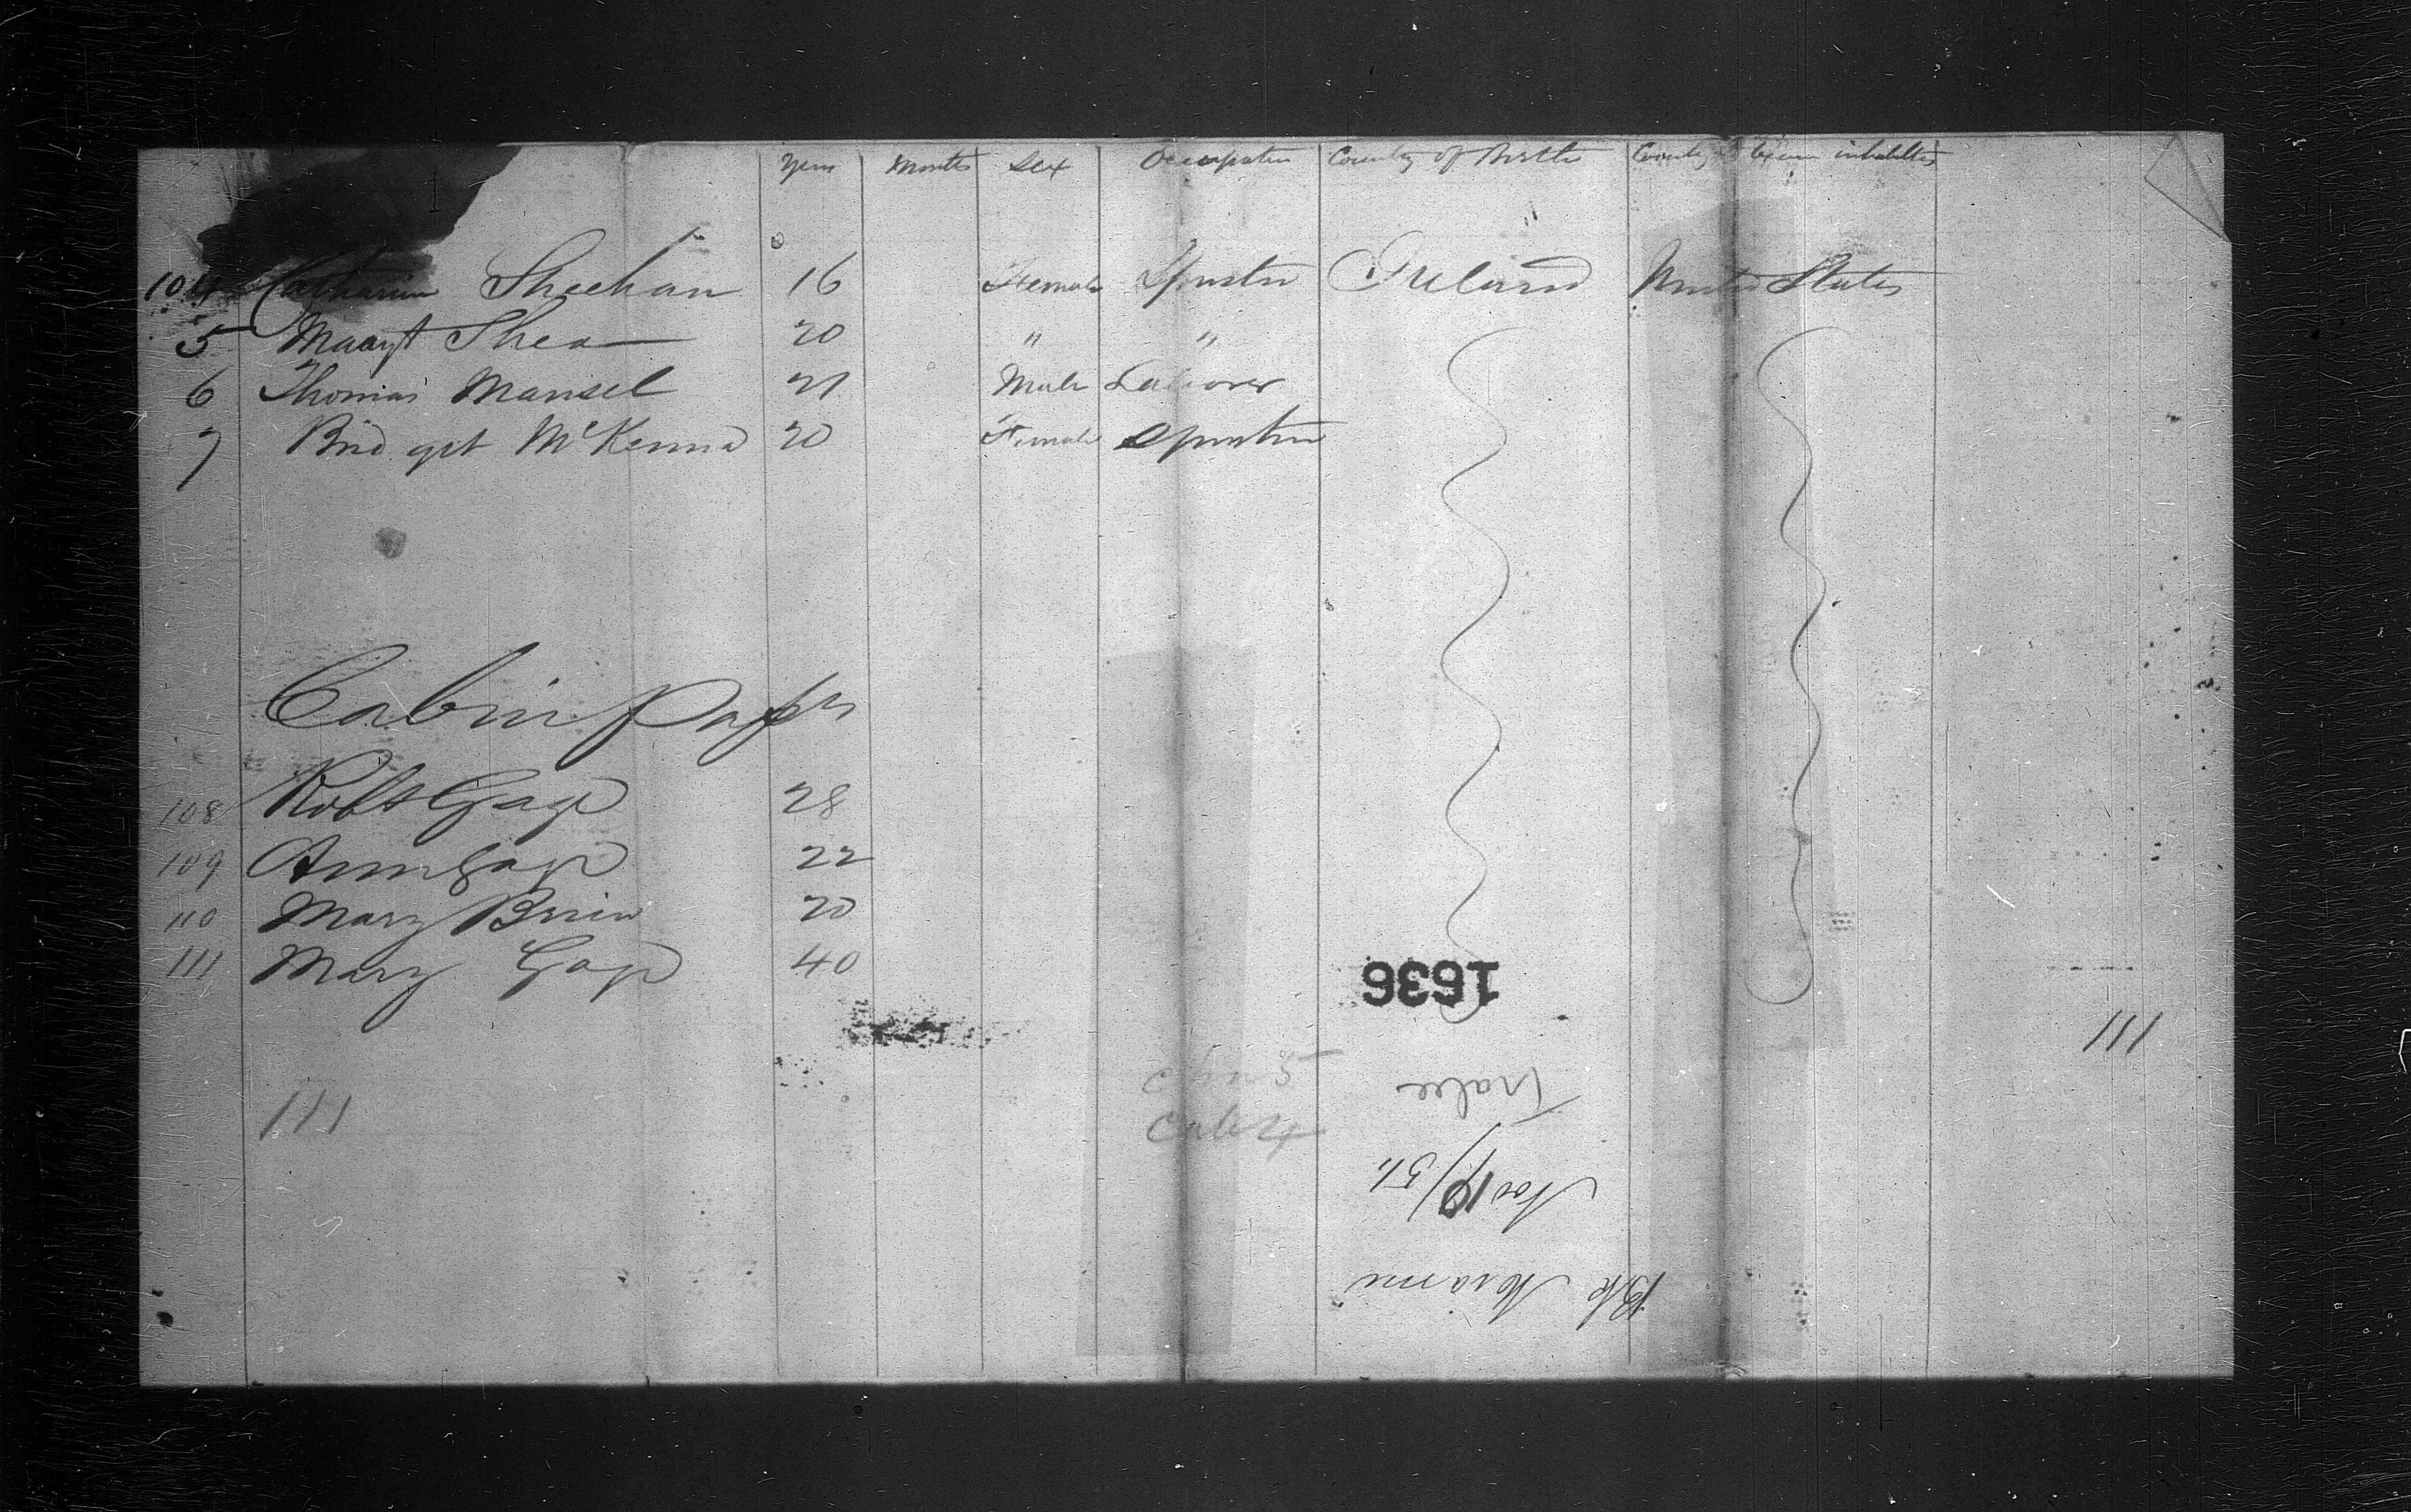 Years Months Sex Occupation Country of Birth Country to become inhabitts
104 Catharine Sheehan 16 Female Spinster Ireland United States
5 Maryt Shea 20 " "
6 Thomas Mansel 21 Male Labourer
7 Bridget McKenna 20 Female Spinster
Cabin Passrs
108 Robt Gage 28
109 Ann Gage 22
110 Mary Brien 20
111 Mary Gage 40
1636
111
111
Tralee
Nov 10/51
Bk